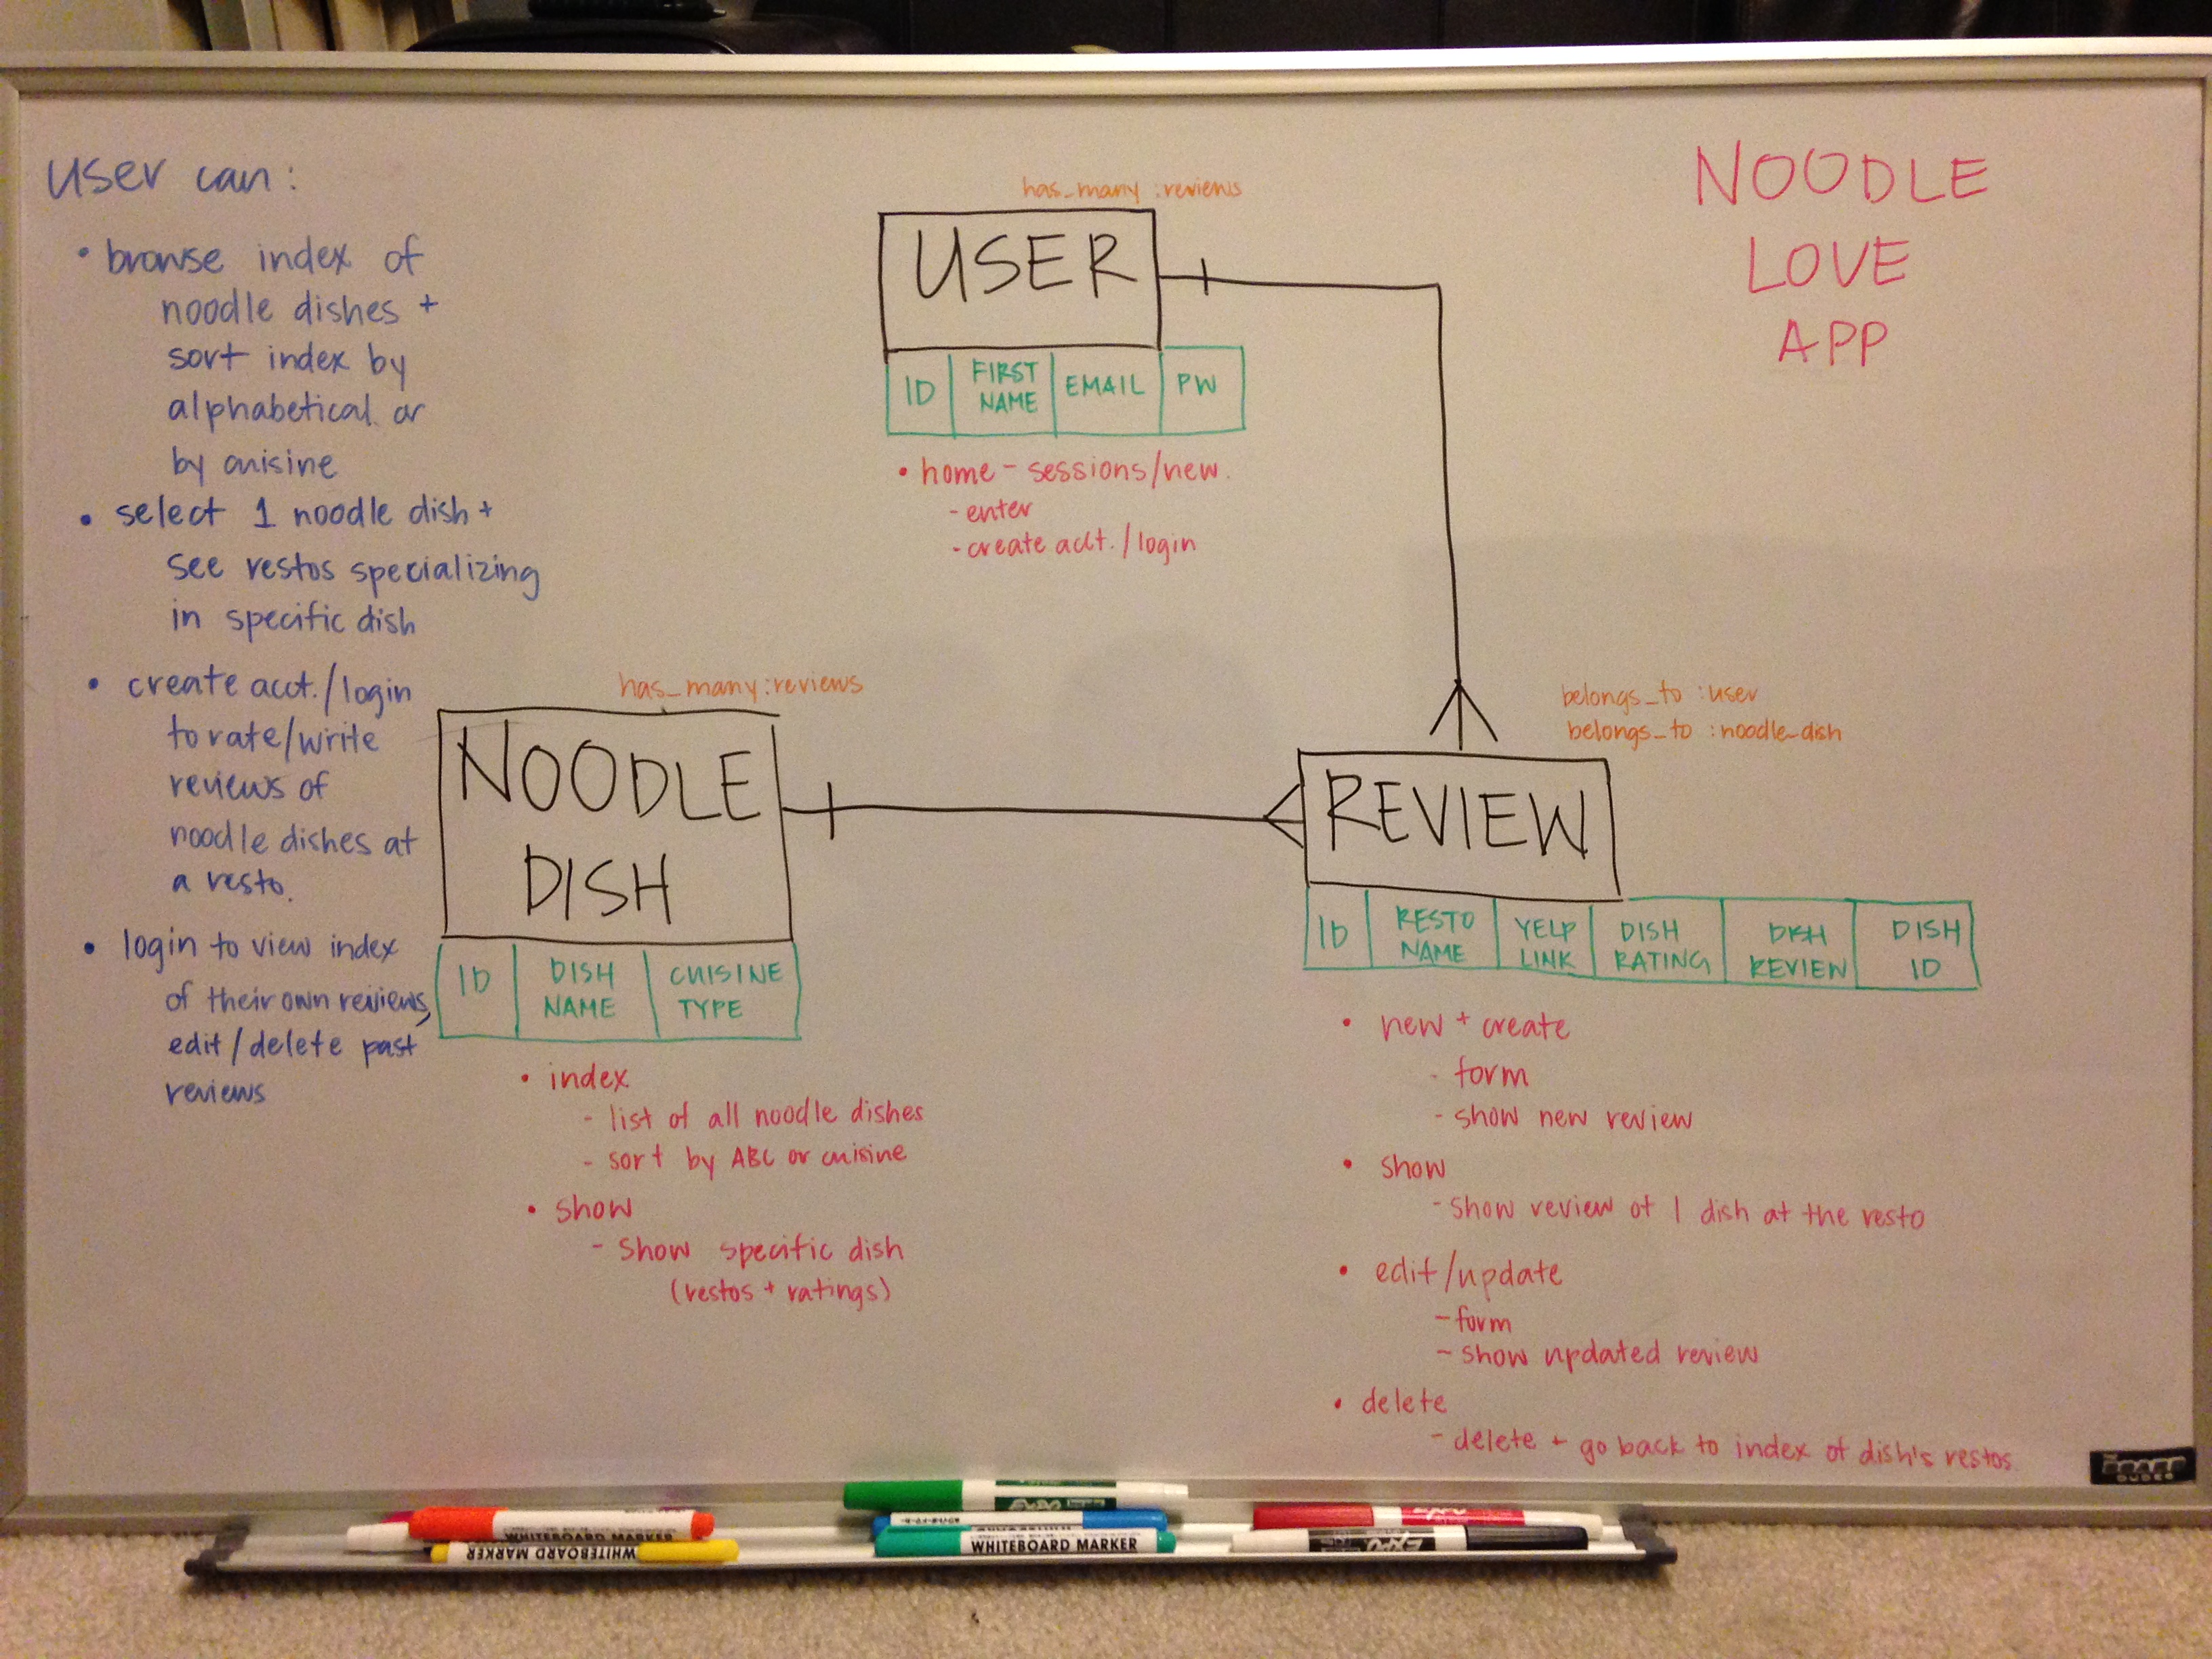 user can:
• browse index of
noodle dishes +
sort index by
alphabetical or
by cuisine
• select 1 noodle dish +
see restos specializing
in specific dish
• create acct./login
to rate/write
reviews of
noodle dishes at
a resto.
• login to view index
of their own reviews,
edit/delete past
reviews
NOODLE
LOVE
APP
has_many :reviews
USER
ID
FIRST
NAME
EMAIL
PW
• home - sessions/new.
- enter
- create acct./login
has_many:reviews
NOODLE
DISH
ID
DISH
NAME
CUISINE
TYPE
• index
- list of all noodle dishes
- sort by ABC or cuisine
• show
- show specific dish
(restos + ratings)
belongs_to :user
belongs_to :noodle_dish
REVIEW
ID
RESTO
NAME
YELP
LINK
DISH
RATING
DISH
REVIEW
DISH
ID
• new + create
- form
- show new review
• show
- show review of 1 dish at the resto
• edit/update
- form
- show updated review
• delete
- delete + go back to index of dish's restos.
THE BOARD
DUDES
WHITEBOARD MARKER
WHITEBOARD MARKER
WHITEBOARD MARKER
EXPO
EXPO
EXPO